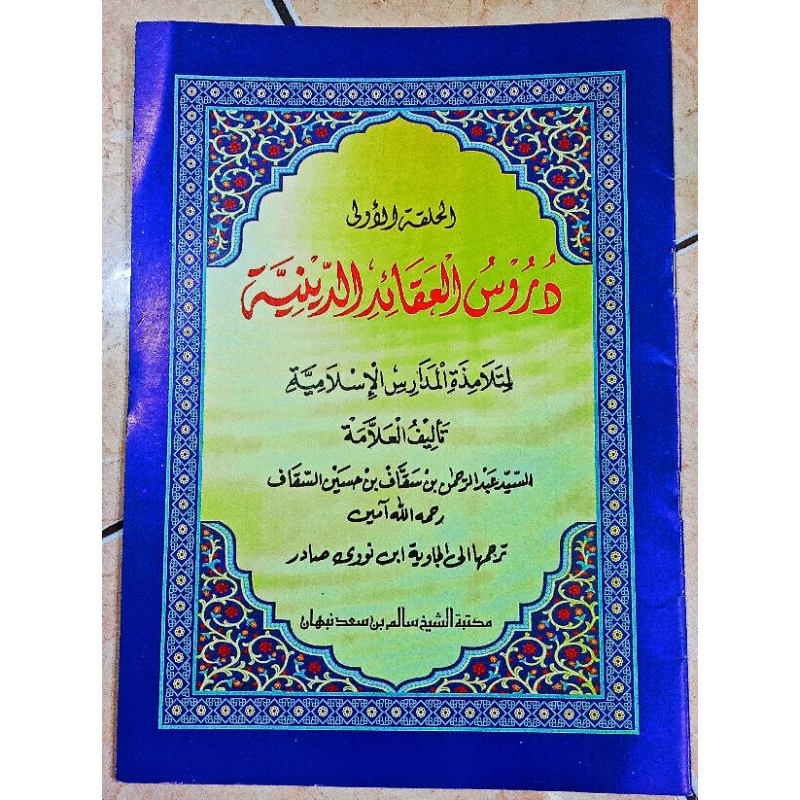 الحلقة الأولى
دُرُوْسُ الْعَقَائِدِ الدِّيْنِيَّةِ
لِتَلَامِذَةِ الْمَدَارِسِ الْإِسْلَامِيَّةِ
تَأْلِيْفُ الْعَلَّامَةْ
السيّد عبد الرحمن بن سقاف بن حسين السقاف
رحمه الله آمين
ترجمها الى الجاوية ابن نووى صادر
مكتبة الشيخ سالم بن سعد نبهان